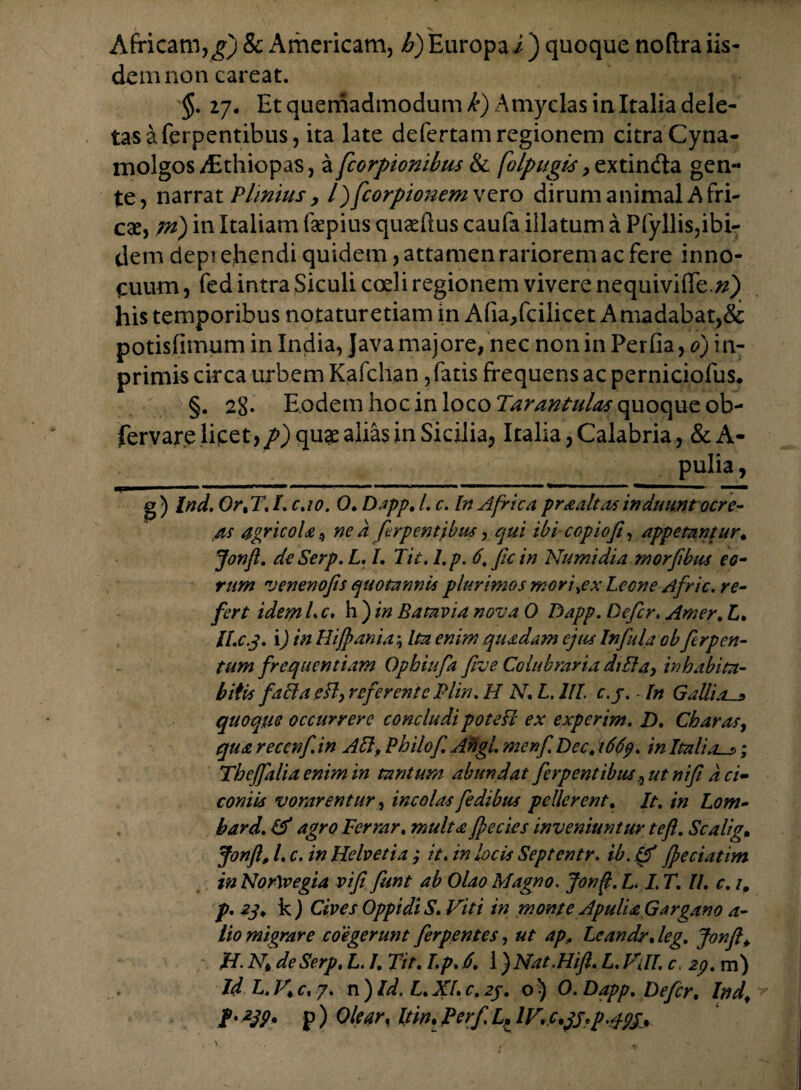 Africam,g) & Americam, h) Europa i ) quoque noſtra iis-
dem non careat.
§. 27. Et quemadmodum k) Amyclas in Italia dele-
tas à ſerpentibus, ita late deſertam regionem citra Cyna-
molgos Æthiopas, à ſcorpionibus & ſolpugis, extincta gen-
te, narrat Plinius, l) ſcorpionem vero dirum animal Afri-
cæ, m) in Italiam ſæpius quæſtus cauſa illatum à Pſyllis,ibi-
dem deprehendi quidem, attamen rariorem ac fere inno-
cuum, ſed intra Siculi cœli regionem vivere nequiviſſe.n)
his temporibus notatur etiam in Aſia,ſcilicet Amadabat,&
potisſimum in India, Java majore, nec non in Perſia, o) in-
primis circa urbem Kaſchan ,ſatis frequens ac pernicioſus.
§. 28. Eodem hoc in loco Tarantulas quoque ob-
ſervare licet, p) quæ aliàs in Sicilia, Italia, Calabria, & A-
pulia,
g) Ind. Or.T.I. c.10. O. Dapp. l. c. In Africa præaltas induunt ocre-
as agricolæ, ne à ſerpentibus, qui ibi copioſi, appetantur.
Jonſt. de Serp. L. I. Tit. 1.p. 6. ſic in Numidia morſibus eo-
rum venenoſis quotannis plurimos mori,ex Leone Afric. re-
fert idem l. c. h ) in Batavia nova O Dapp. Deſcr. Amer. L.
II.c.3. i) in Hiſpania; Ita enim quædam ejus Inſula ob ſerpen-
tum frequentiam Ophiuſa ſive Colubraria dicta, inhabita-
bitis facta eſt, referente Plin. H N. L. III. c.5. In Gallia
quoque occurrere concludi poteſt ex experim. D. Charas,
quæ recenſ.in Act. Philoſ. Angl. menſ. Dec. 1669. in Italia;
Theſſalia enim in tantum abundat ſerpentibus, ut niſi à ci-
coniis vorarentur, incolas ſedibus pellerent. It. in Lom-
bard. & agro Ferrar. multæ ſpecies inveniuntur teſt. Scalig.
Jonſt. l. c. in Helvetia ; it. in locis Septentr. ib. & ſpeciatim
in Norwegia viſi ſunt ab Olao Magno. Jonſt. L. I. T. II. c. 1.
p. 23. k) Cives Oppidi S. Viti in monte Apuliæ Gargano a-
lio migrare coëgerunt ſerpentes, ut ap. Leandr. leg. Jonſt.
H. N. de Serp. L. I. Tit. I.p. 6. l ) Nat.Hiſt. L. VIII. c. 29. m)
Id L. V. c. 7. n ) Id. L. XI. c. 25. o ) O. Dapp. Deſcr. Ind.
p. 239. p ) Olear. Itin. Perſ. L. IV. c.35.p.495.